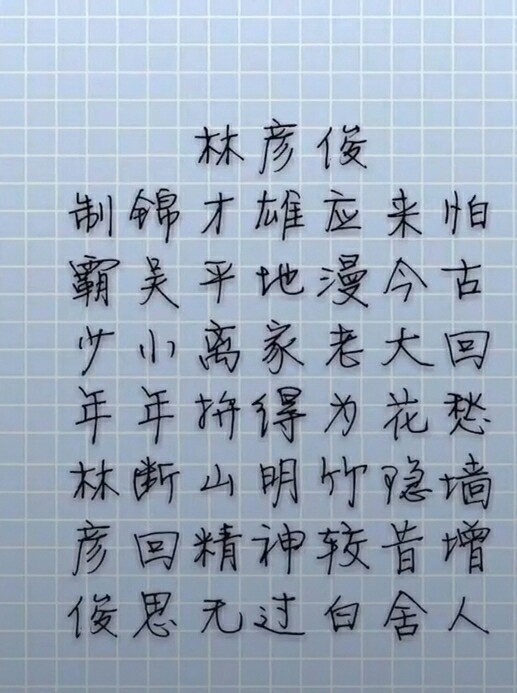 林彦俊
制锦才雄应来怕
霸吴平地漫今古
少小离家老大回
年年拚得为花愁
林断山明竹隐墙
彦回精神较昔增
俊思无过白舍人